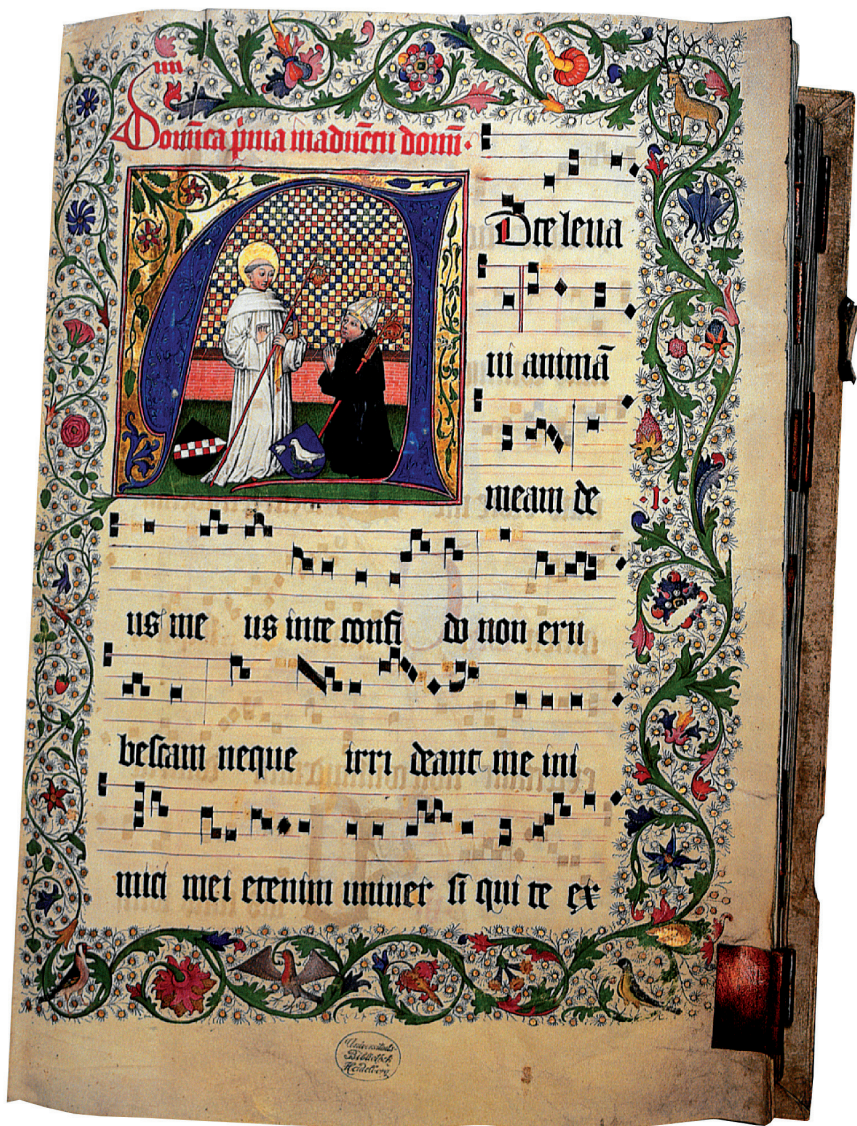 Domīca p̄ma inadūētu domī·
Dte leua
ui animā
meam de
us me us inte confi do non eru
bescam neque irri deant me ini
mici mei etenim uniuer si qui te ex
·I·
Universitäts-
Bibliothek
Heidelberg